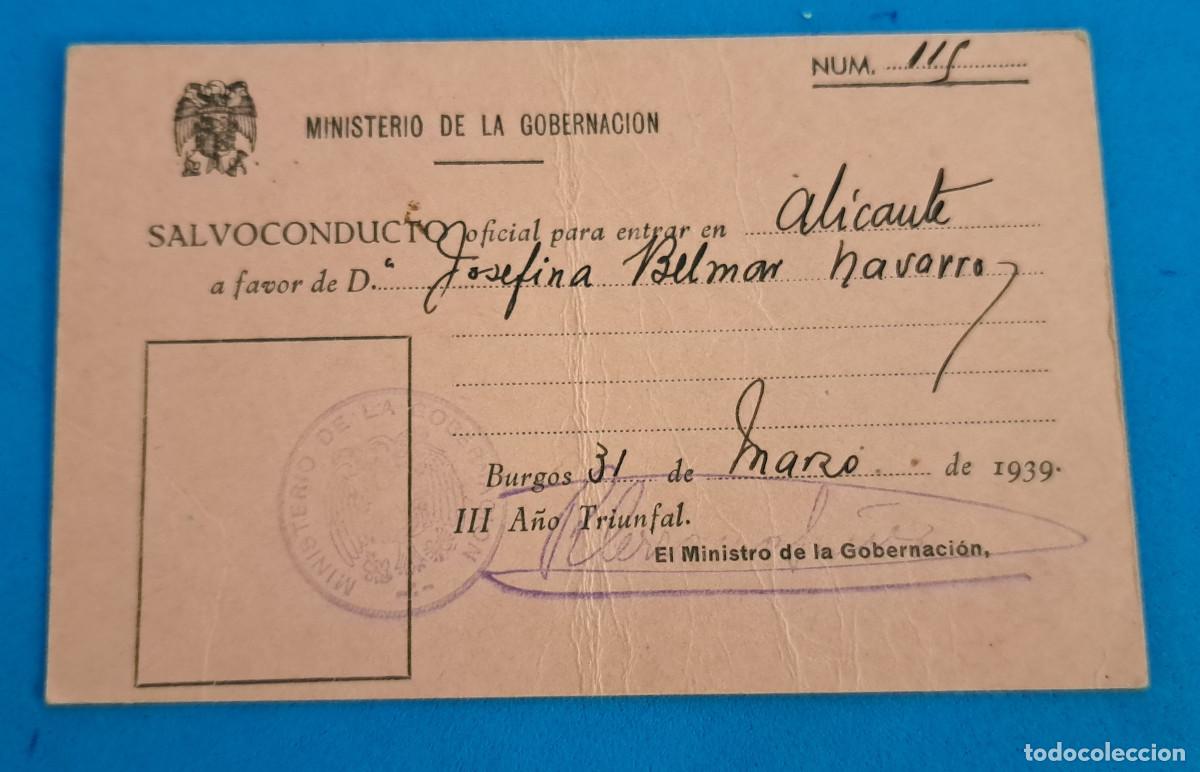 NUM. 115
MINISTERIO DE LA GOBERNACION
SALVOCONDUCTO oficial para entrar en Alicante
a favor de D.ª Josefina Belmar Navarro
MINISTERIO DE LA GOBERNACION
Burgos 31 de Marzo de 1939.
III Año Triunfal.
El Ministro de la Gobernación,
todocoleccion